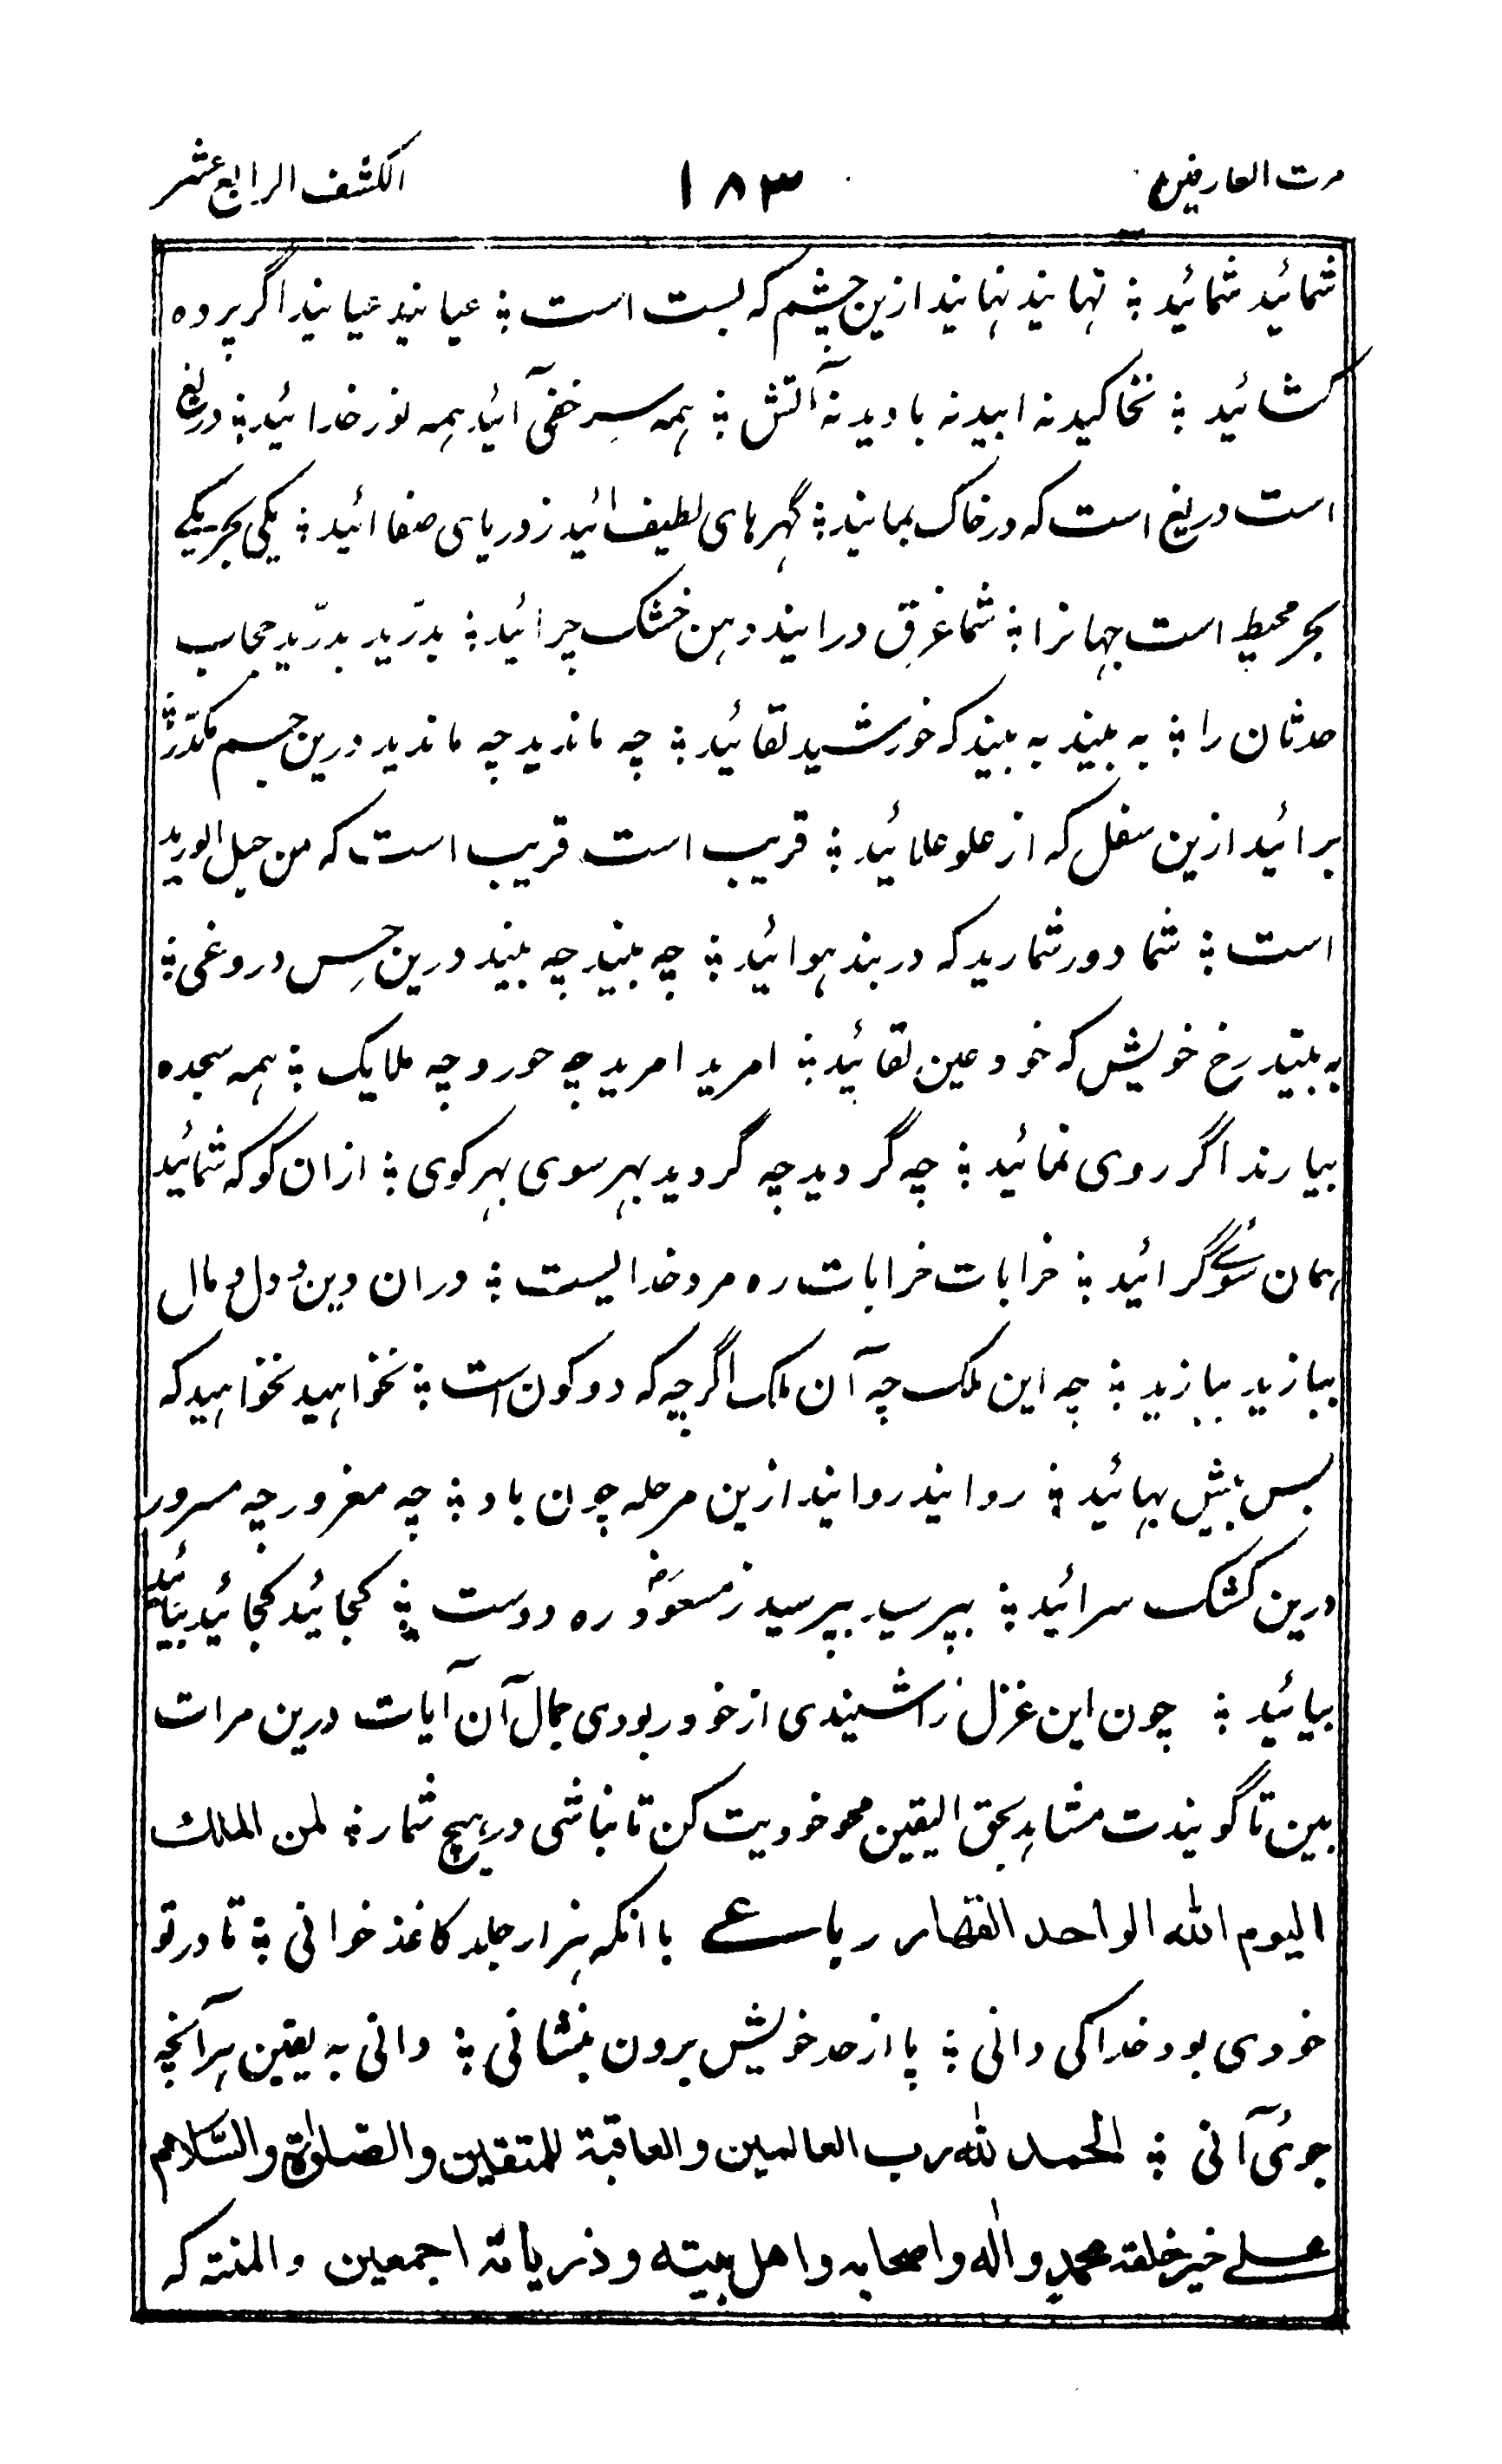 مرت العارفین ۱۸۳ الکشف الرابع عشر
شمائید شمائید ؛ نهانید نهانید ازین چشم که بست است ؛ عیانید عیانید اگر پرده
کشائید ؛ نخاکید نه ابید نه بادید نه آتش ؛ همه سِر خفی آئید همه نور خدائید ؛ دریغ
است دریغ است که در خاک بمانید ؛ گهرهای لطیف ائید ز دریای صفا ائید ؛ یکی بحر یکے
بحر محیط است جهانرا ؛ شما غرق درانید دهن خشک چرائید ؛ بدرّید بدرّید حجاب
حدثان را ؛ به بیند به بیند که خورشید لقائید ؛ چه ماندید چه ماندید درین جسم مکدّر ؛
برائید ازین سفل که از علو علائید ؛ قریب است قریب است که من حبل الورید
است ؛ شما دور شمارید که در بند هوائید ؛ چه بیند چه بیند درین حِس دروغی ؛
به بیند رخ خویش که خود عین لقائید ؛ امرید امرید چه حور و چه ملایک ؛ همه سجده
بیارند اگر روی نمائید ؛ چه گردید چه گردید بهر سوی بهر کوی ؛ ازان کو که شمائید
همان سوئے گرائید ؛ خرابات خرابات ره مرد خدایست ؛ دران دین و دل و مال
ببازید ببازید ؛ چه این ملک چه آن ملک اگرچه که دو کون است ؛ نخواهید نخواهید که
بس بیش بهائید ؛ روانید روانید ازین مرحله چون باد ؛ چه مغرور چه مسرور
درین کشک سرائید ؛ بپرسید بپرسید ز مسعود ره دوست ؛ کجائید کجائید بیائید
بیائید ؛ چون این غزل را شنیدی از خود ربودی جمال آن آیات درین مرات
ببین تا گویندت مشاهد بحق الیقین محو خودیت کن تا نباشی در هیچ شمار ؛ لمن الملک
الیوم الله الواحد القهار رباعے با انکه هزار جلد کاغذ خوانی ؛ تا در تو
خودی بود خدا کی دانی ؛ پا از حد خویش برون بنشانی ؛ دانی به یقین هر آنچه
جوئی آنی ؛ الحمد لله رب العالمین والعاقبة للمتقین والصلوٰة والسّلام
علے خیر خلقه محمد واٰله واصحابه واهل بیته وذریاته اجمعین والمنته که